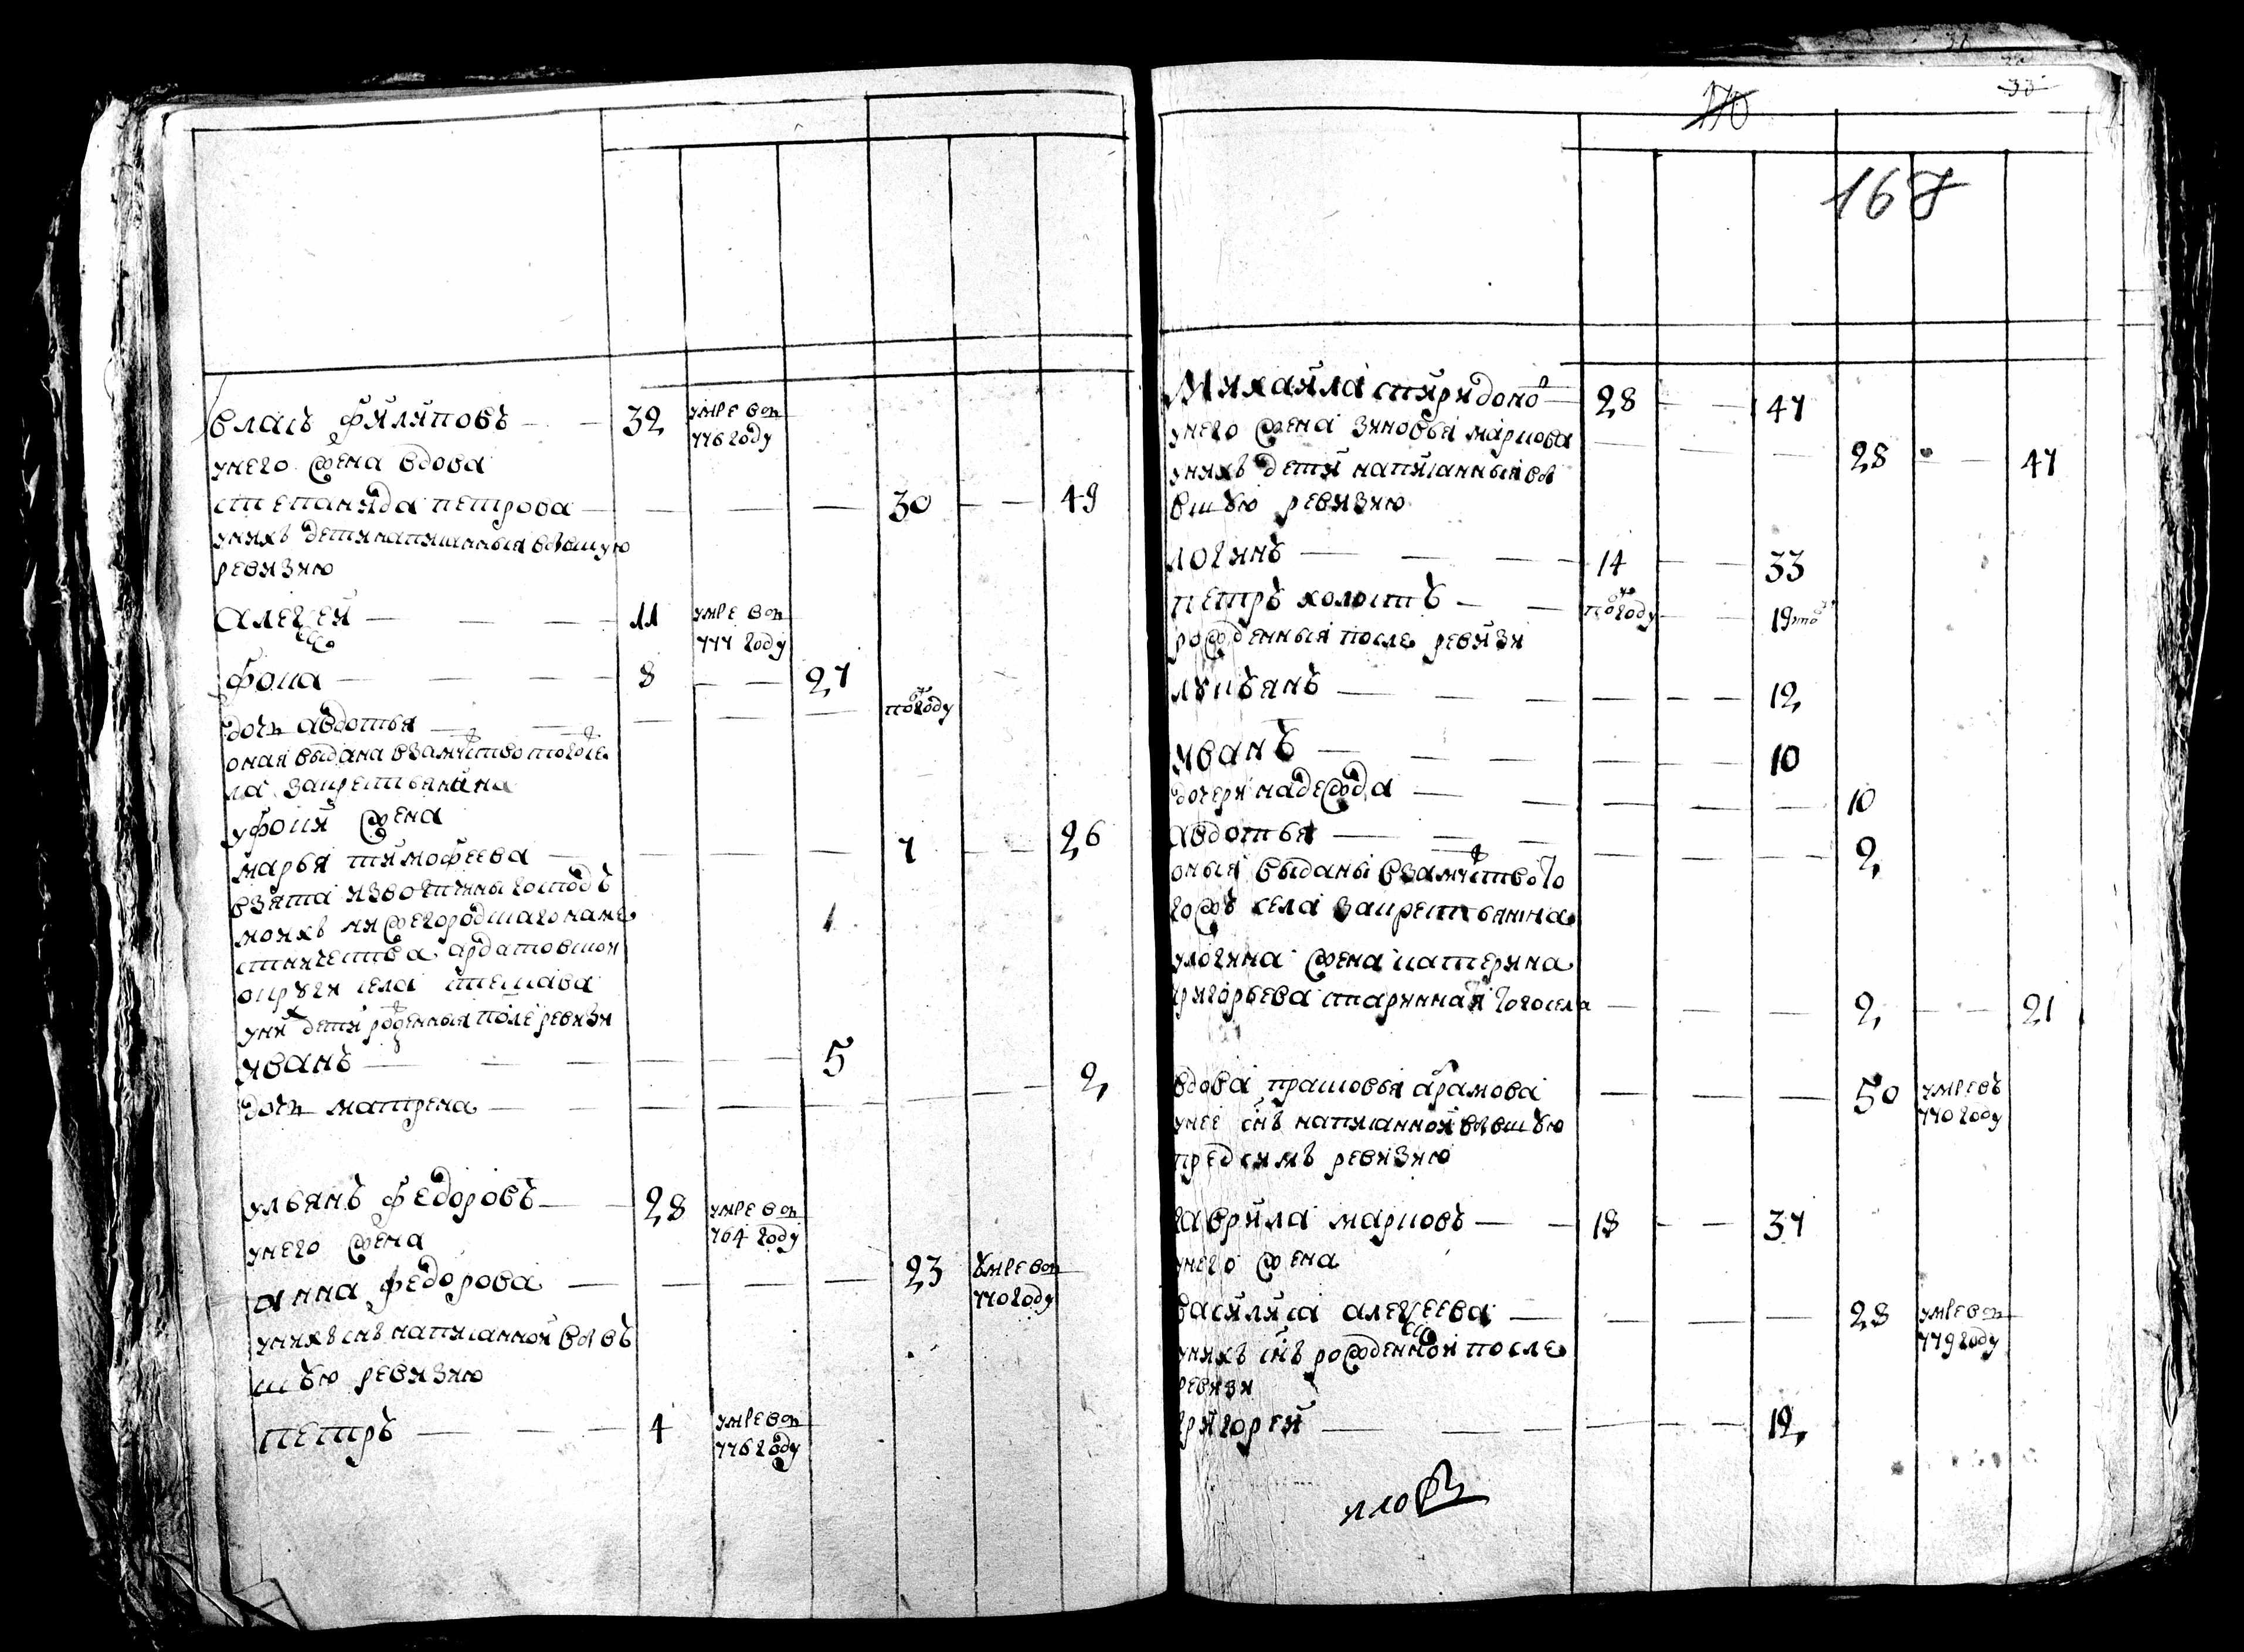 власъ филиповъ — 32 умре воп
776 году
унего жена вдова
степанида петрова — 30 — 49
унихъ дети написанныя въвшую
ревизию
алексей — 11 умре воп
777 году
фока — 8 — 27
дочь авдотья — полгоду
оная выдана взамужство тогосе
ла закрестьянина
уфоки жена
марья тимофеева — 7 — 26
взята извотчины господъ
моихъ нижегородскаго наме
стничества ардатовской
округи села
уних дети рожденныя после ревизи
иванъ — 5
дочь матрена — 2
ульянъ федоровъ — 28 умре воп
764 году
унего жена
анна федорова — 23 умре воп
770 году
унихъ снъ написанной въвъ
шъю ревизию
петръ — 4 умре воп
776 году
170
33
167
Михайла спиридоно в — 28 — 47
унего жена зиновья маркова — 28 — 47
унихъ дети написанныя въ
вшую ревизию
логинъ — 14 — 33
петръ холостъ — полгоду — 19 то
рожденныя после ревизи
лукъянъ — 12
иванъ — 10
дочери надежда — 10
авдотья — 2
оныя выданы взамужство то
гожъ села закрестьянина
улогина жена катерина
григорьева старинная тогосела — 2 — 21
вдова прасковья абрамова — 50 умре въ
770 году
унее снъ написанной въвшую
предсимъ ревизию
гаврила марковъ — 18 — 37
унего жена
василиса алексеева — 28 умре воп
779 году
унихъ снъ рожденной после
ревизи
григорей — 12